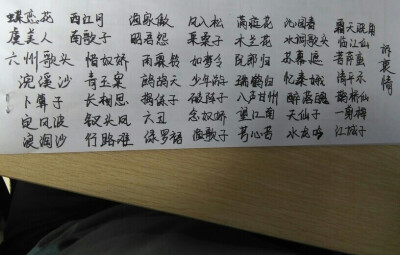 蝶恋花 西江月 渔家傲 风入松 满庭芳 沁园春 霜天晓角
虞美人 南歌子 明君怨 采桑子 木兰花 水调歌头 临江仙
六州歌头 惜奴娇 雨霖铃 如梦令 阮郎归 苏幕遮 菩萨蛮 诉衷情
浣溪沙 青玉案 鹧鸪天 少年游 瑞鹤仙 忆秦娥 清平乐
卜算子 长相思 捣练子 破阵子 八声甘州 醉落魄 鹊桥仙
定风波 钗头凤 六丑 念奴娇 望江南 天仙子 一剪梅
浪淘沙 行路难 绿罗裙 渔歌子 芎心苦 水龙吟 江城子